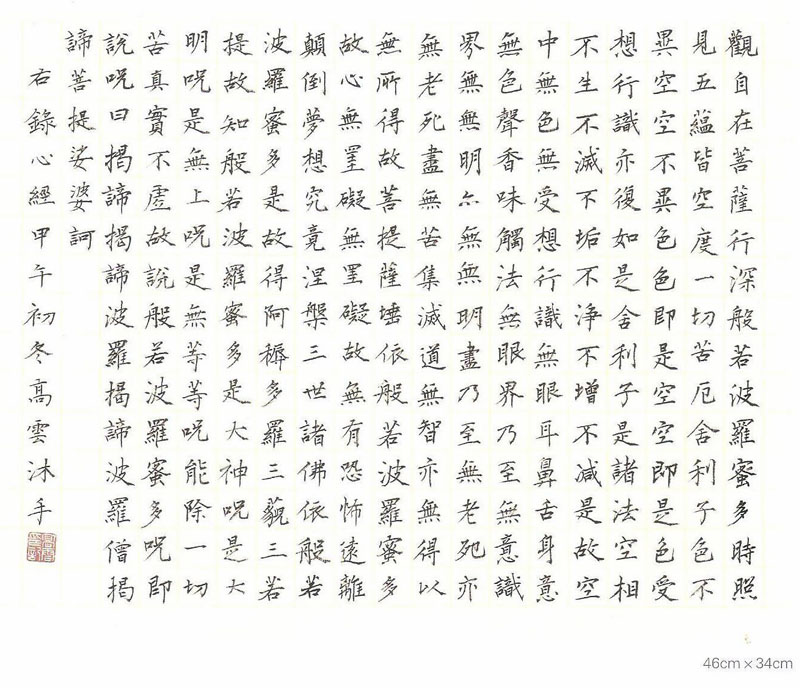 觀自在菩薩行深般若波羅蜜多時照
見五蘊皆空度一切苦厄舍利子色不
異空空不異色色即是空空即是色受
想行識亦復如是舍利子是諸法空相
不生不滅不垢不淨不增不減是故空
中無色無受想行識無眼耳鼻舌身意
無色聲香味觸法無眼界乃至無意識
界無無明亦無無明盡乃至無老死亦
無老死盡無苦集滅道無智亦無得以
無所得故菩提薩埵依般若波羅蜜多
故心無罣礙無罣礙故無有恐怖遠離
顛倒夢想究竟涅槃三世諸佛依般若
波羅蜜多是故得阿耨多羅三藐三若
提故知般若波羅蜜多是大神呪是大
明呪是無上呪是無等等呪能除一切
苦真實不虛故說般若波羅蜜多呪即
說呪曰揭諦揭諦波羅揭諦波羅僧揭
諦菩提娑婆訶
右錄心經甲午初冬高雲沐手
46cm×34cm